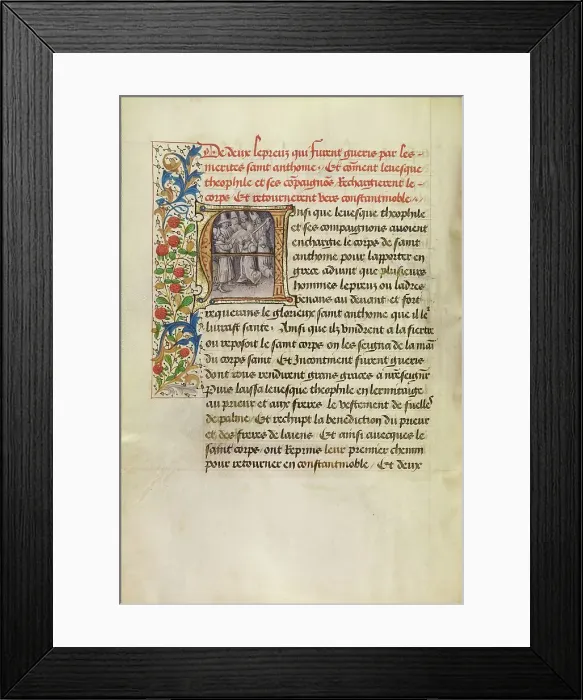 De deux lepreux qui furent gueris par les
merites saint anthoine. Et cõment leuesque
theophile et ses cõpaignons Rechargierent le
corps Et retournerent vers constantinoble
Ainsi que leuesque theophile
et ses compaignons auoient
enchargie le corps de saint
anthoine pour lapporter en
grece aduint que plusieurs
hommes lepreux ou ladres
venans au deuant et fort
requerans le glorieux saint anthoine que il le
luirast sante. Ainsi que ilz vindrent a la fierte
ou reposoit le saint corps on les seigna de la mai
du corps saint Et Incontinent furent gueris
dont ilz rendirent grans graces a nr̃eseignr̃
Puis laissa leuesque theophile en lermitaige
au prieur et aux freres le vestement de fuelles
de palme / Et rechupt la benediction du prieur
et des freres de laiens Et ainsi auecques le
saint corps ont Reprins leur premier chemin
pour retourner en constantinoble / Et deux